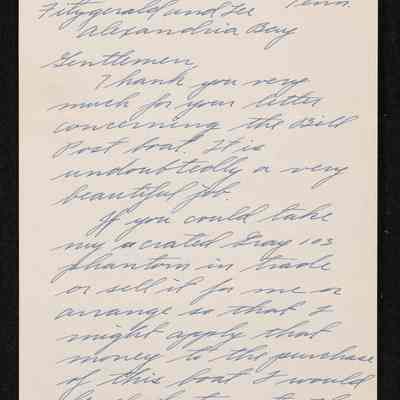 Fitzgerald and Lee Penn.
Alexandria Bay
Gentlemen,
Thank you very
much for your letter
concerning the Bill
Post boat. It is
undoubtedly a very
beautiful job.
If you could take
my crated Gray 103
phantom in trade
or sell it for me or
arrange so that I
might apply that
money to the purchase
of this boat I would